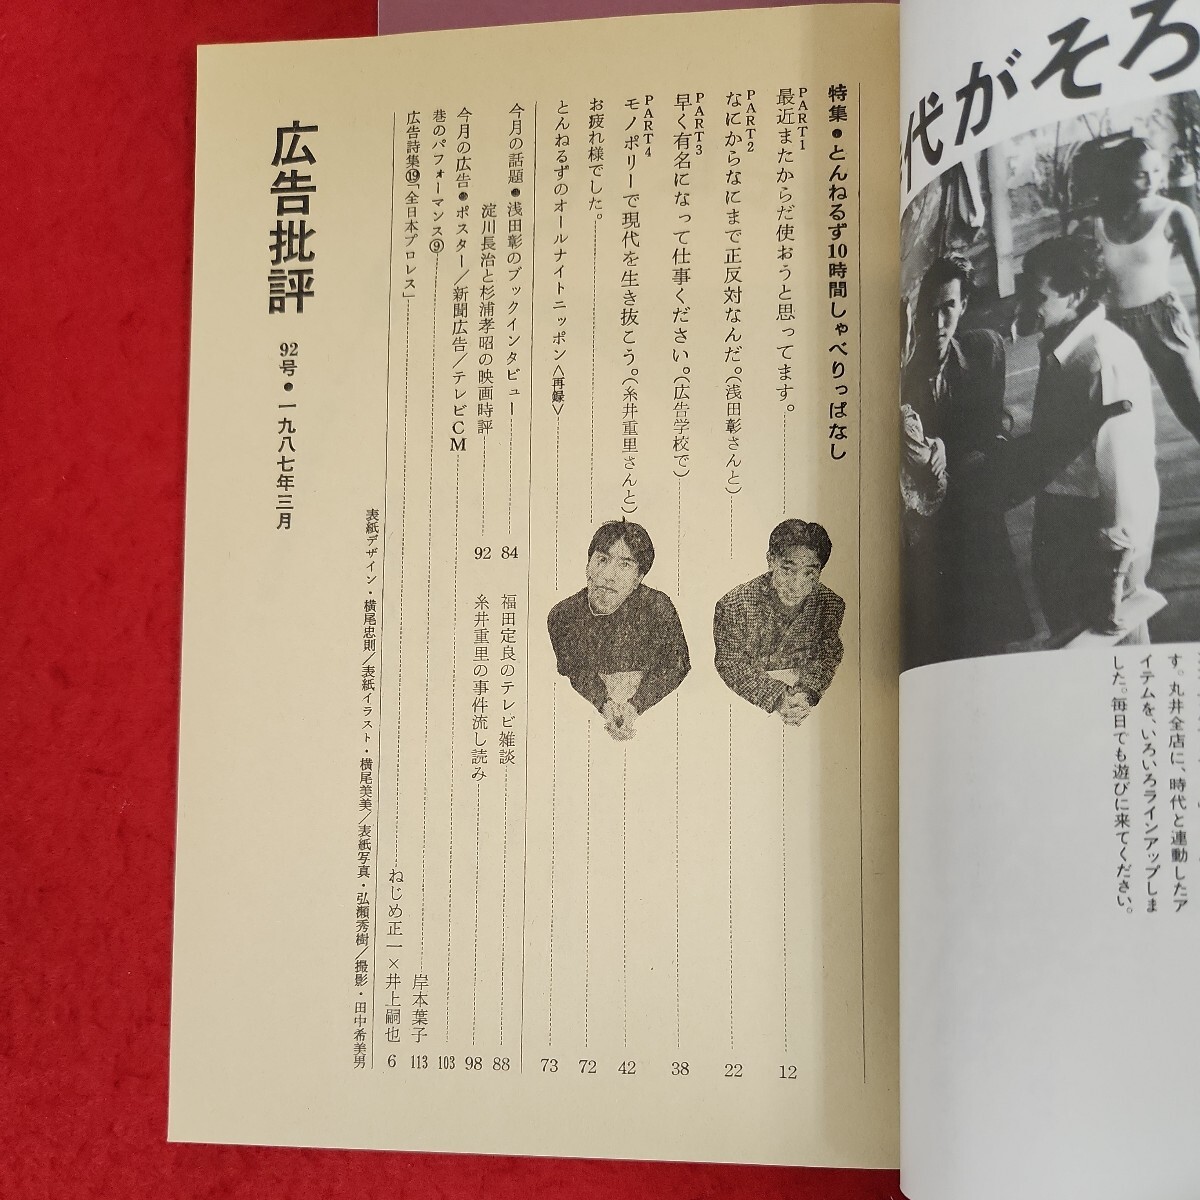 代がそろ
す。丸井全店に、時代と連動したア
イテムを、いろいろラインアップしま
した。毎日でも遊びに来てください。
特集●とんねるず10時間しゃべりっぱなし
PART1
最近またからだ使おうと思ってます。 12
PART2
なにからなにまで正反対なんだ。(浅田彰さんと) 22
PART3
早く有名になって仕事ください。(広告学校で) 38
PART4
モノポリーで現代を生き抜こう。(糸井重里さんと) 42
お疲れ様でした。 72
とんねるずのオールナイトニッポン〈再録〉 73
今月の話題●浅田彰のブックインタビュー 84
福田定良のテレビ雑談 88
淀川長治と杉浦孝昭の映画時評 92
糸井重里の事件流し読み 98
今月の広告●ポスター/新聞広告/テレビCM 103
巷のパフォーマンス⑨ 岸本葉子 113
広告詩集⑲「全日本プロレス」 ねじめ正一×井上嗣也 6
表紙デザイン・横尾忠則/表紙イラスト・横尾美美/表紙写真・弘瀬秀樹/撮影・田中希美男
広告批評 92号●一九八七年三月